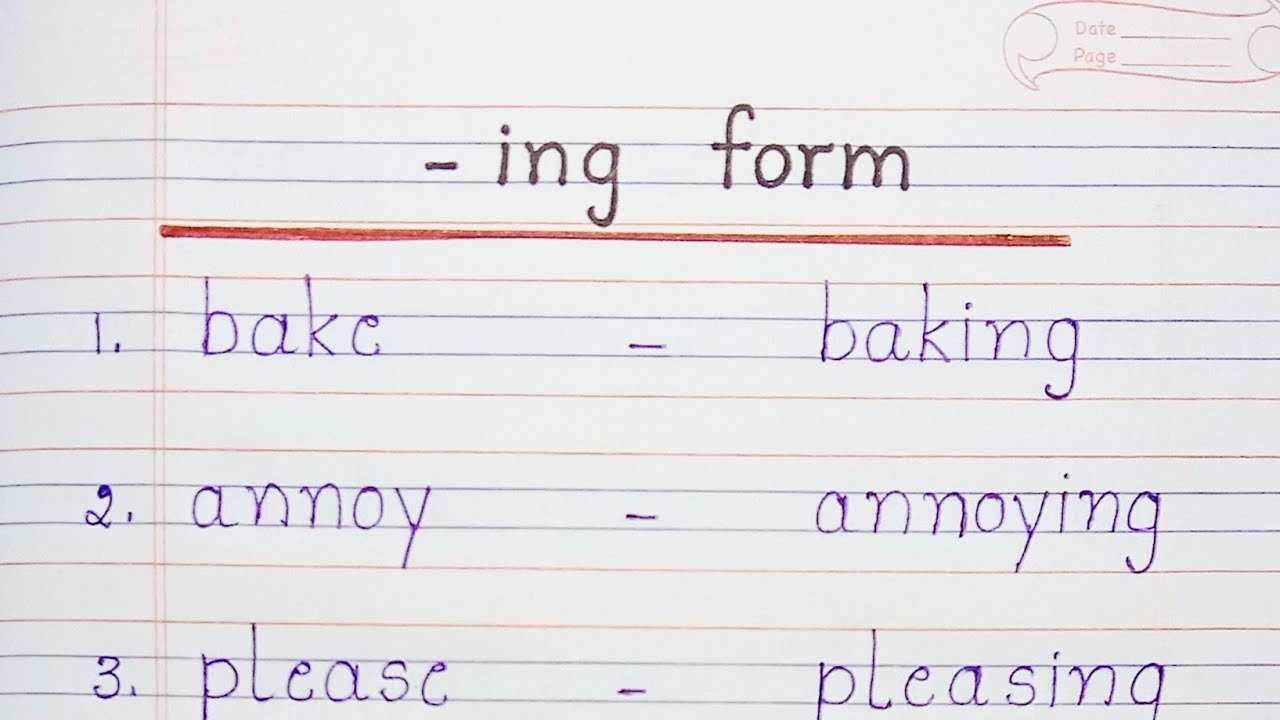 Date
Page
- ing form
1. bake - baking
2. annoy - annoying
3. please - pleasing